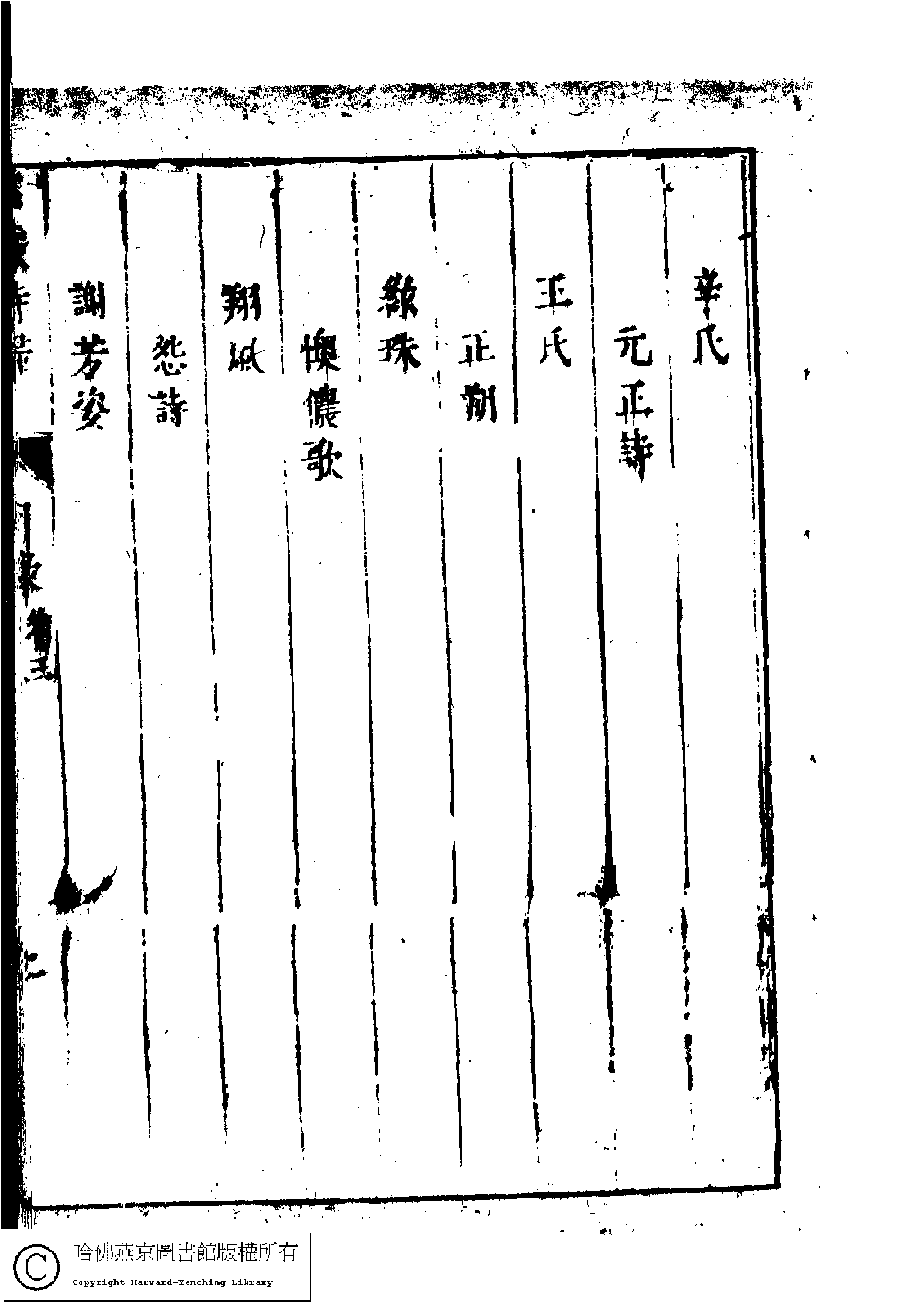 辛氏
元正詩
王氏
正朔
綠珠
懊儂歌
翔風
怨詩
謝芳姿
哈佛燕京圖書館版權所有
Copyright Harvard-Yenching Library